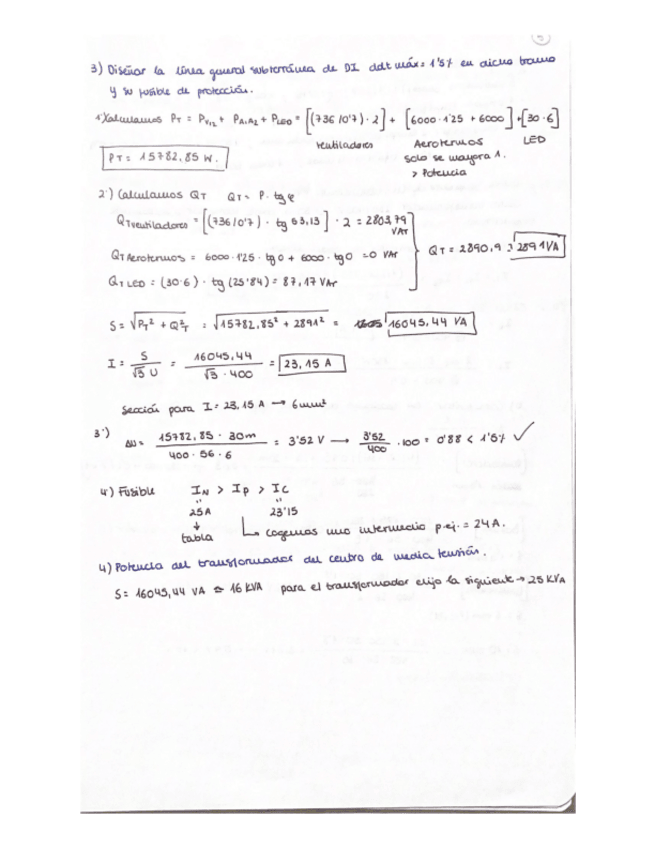 5
3) Diseñar la línea general subterránea de DI ddt máx = 1'5% en dicho tramo
y su fusible de protección.
1º) Calculamos PT = PV12 + PA1A2 + PLED = [(736/0'7) · 2] + [6000 · 1'25 + 6000] + [30 · 6]
Ventiladores Aerotermos LED
solo se mayora 1.
> Potencia
PT = 15782,85 W.
2º) Calculamos QT QT = P. tg φ
QT ventiladores = [(736/0'7) · tg 53,13] · 2 = 2803,79 VAr
QT Aerotermos = 6000 · 1'25 · tg 0 + 6000 · tg 0 = 0 VAr
QT = 2890,9 ≈ 2891 VA
QT LED = (30·6) · tg (25'84) = 87,17 VAr
S = √PT² + QT² = √15782,85² + 2891² = 16045,44 VA
I = S / √3 U = 16045,44 / √3 · 400 = 23,15 A
Sección para I = 23,15 A → 6mm²
3º) ΔU = 15782,85 · 30m / 400 · 56 · 6 = 3'52 V → 3'52 / 400 · 100 = 0'88 < 1'5% ✓
4º) Fusible IN > IP > IC
25A 23'15
↓ ↳ cogemos uno intermedio p.ej. = 24A.
tabla
4) Potencia del transformador del centro de media tensión.
S = 16045,44 VA ≃ 16 KVA para el transformador elijo la siguiente → 25 KVA